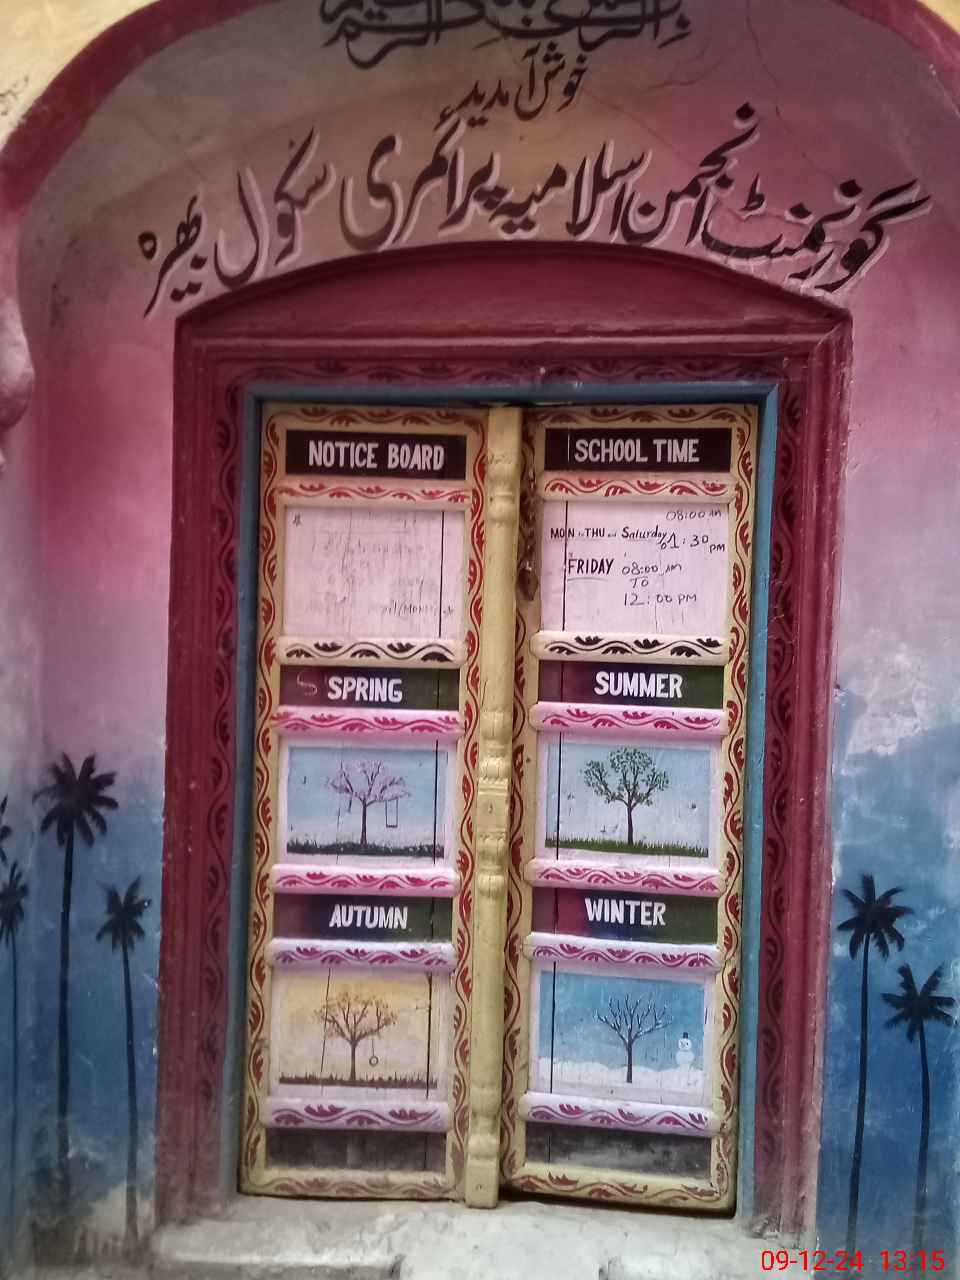 خوش آمدید
گورنمنٹ انجمن اسلامیہ پرائمری سکول بھیرہ
NOTICE BOARD
SCHOOL TIME
08:00 AM
MON To THU and Saturday
To 1:30 PM
FRIDAY 08:00 AM
TO
12:00 PM
SPRING
SUMMER
AUTUMN
WINTER
09-12-24 13:15